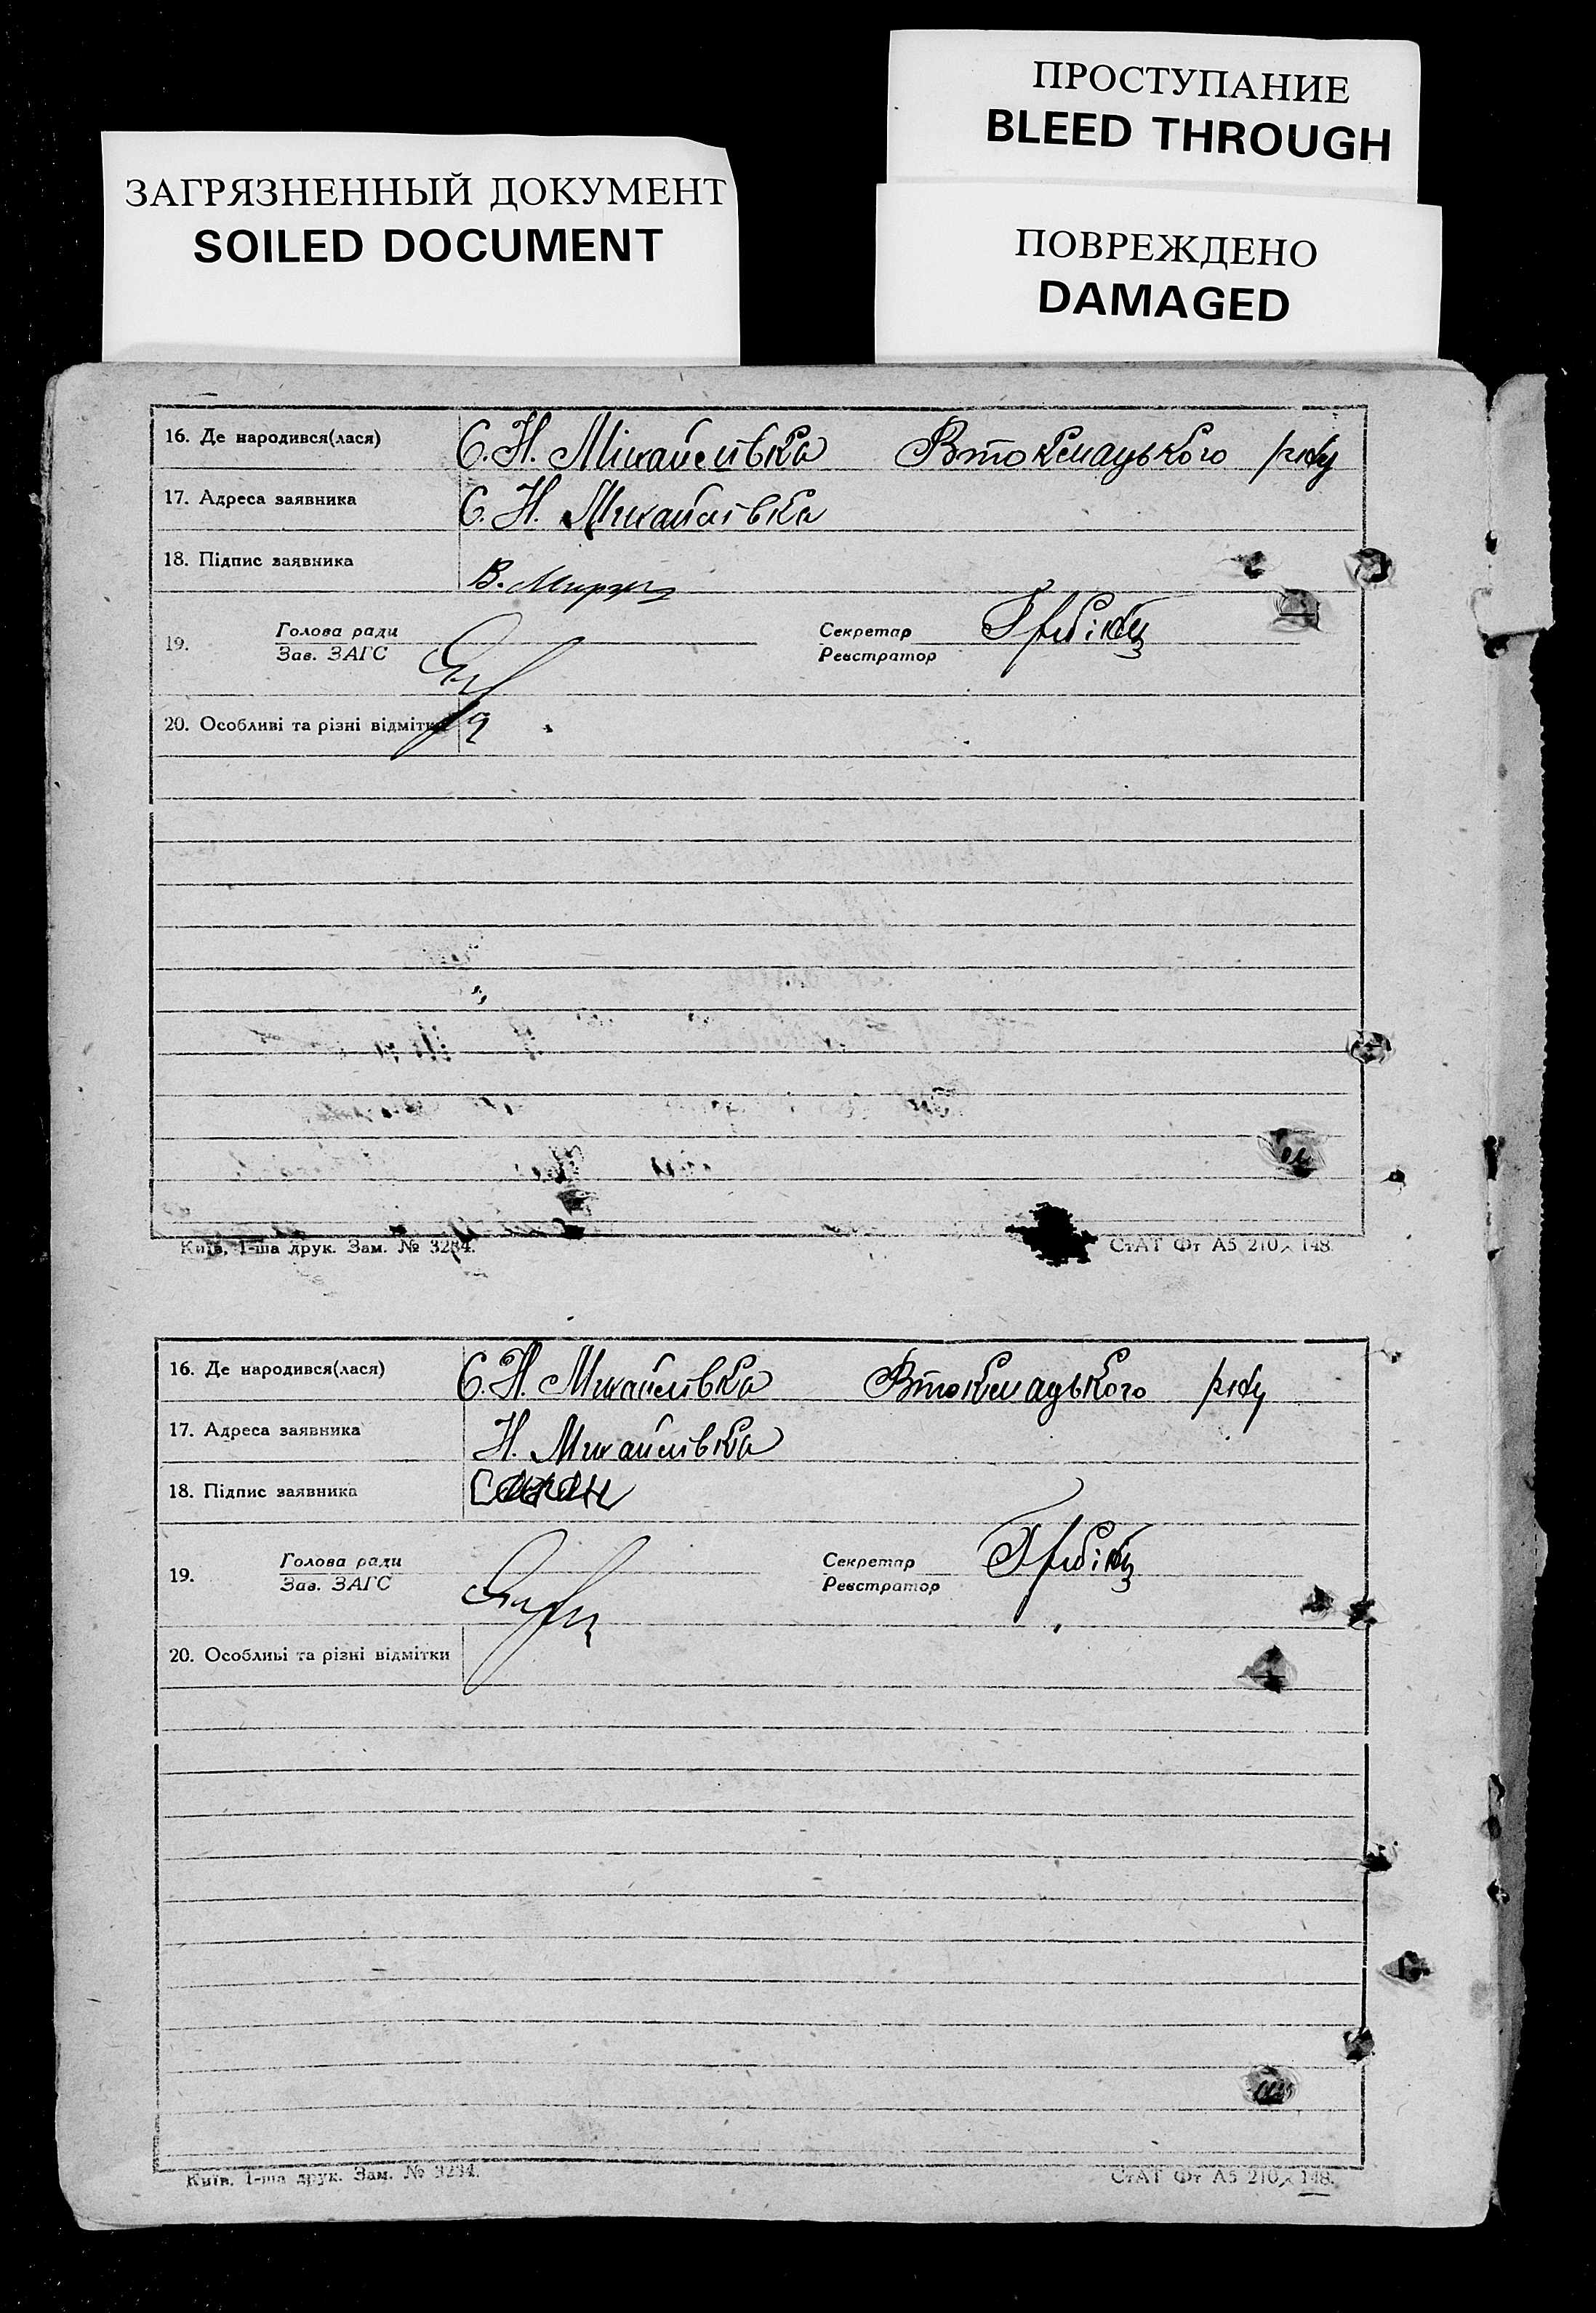 ПРОСТУПАНИЕ
BLEED THROUGH
ЗАГРЯЗНЕННЫЙ ДОКУМЕНТ
SOILED DOCUMENT
ПОВРЕЖДЕНО
DAMAGED
16. Де народився(лася) С. Н. Міхайлівка Втокмацького р-ну
17. Адреса заявника С. Н. Михайлівка
18. Підпис заявника В.
19. Голова ради Секретар
Зав. ЗАГС Реєстратор
20. Особливі та різні відмітки
Київ, 1-ша друк. Зам. № 3234. СтАТ Фт А5 210 × 148.
16. Де народився(лася) С. Н. Михайлівка Втокмацького р-ну
17. Адреса заявника Н. Михайлівка
18. Підпис заявника
19. Голова ради Секретар
Зав. ЗАГС Реєстратор
20. Особливі та різні відмітки
Київ, 1-ша друк. Зам. № 3234. СтАТ Фт А5 210 × 148.